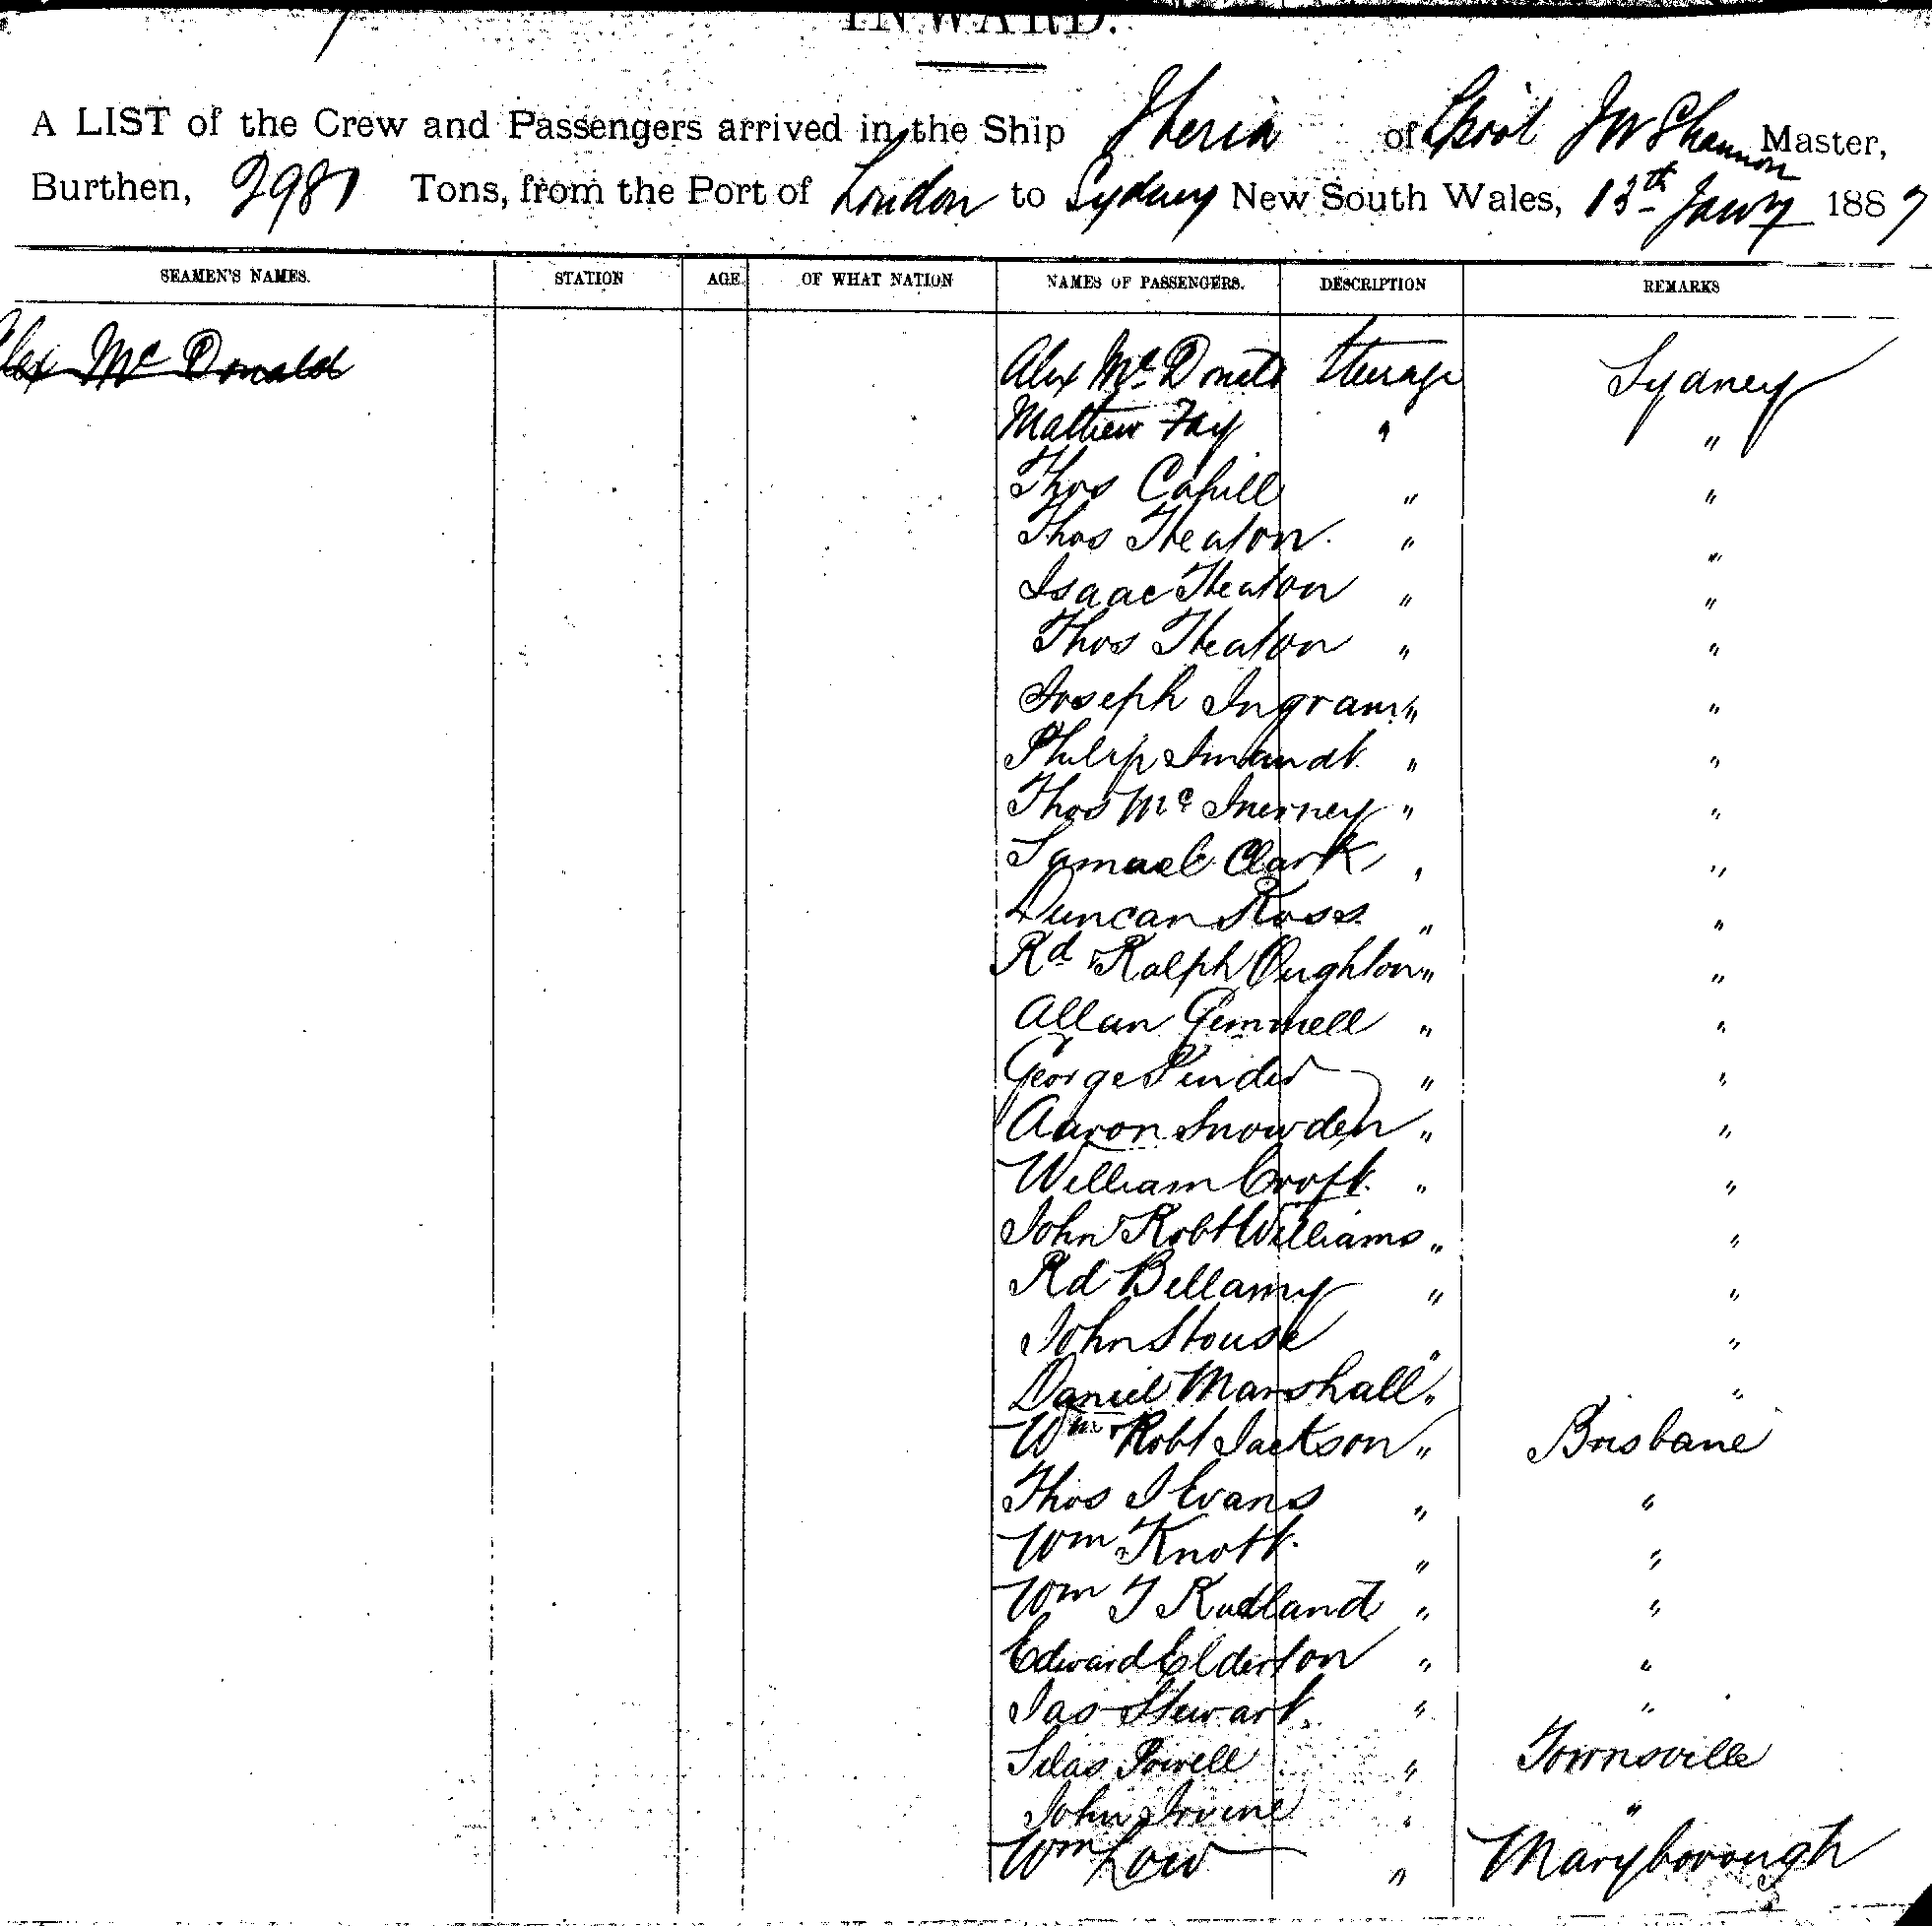 INWARD.
A LIST of the Crew and Passengers arrived in the Ship Iberia of Lpool JW Shannon Master,
Burthen, 2981 Tons, from the Port of London to Sydney New South Wales, 13th Jany 1887
SEAMEN'S NAMES. STATION AGE OF WHAT NATION NAMES OF PASSENGERS. DESCRIPTION REMARKS
Alex Mc Donald Alex Mc Donald Steerage Sydney
Mathew Fay " "
Thos Cahill " "
Thos Heaton " "
Isaac Heaton " "
Thos Heaton " "
Joseph Ingram " "
Philip " "
Thos Mc Inerney " "
Samuel Clark " "
Duncan Ross " "
Rd Ralph Oughton " "
Allan Gemmell " "
George Pinder " "
Aaron Snowden " "
William Croft " "
John Robt Williams " "
Rd Bellamy " "
John " "
Daniel Marshall " "
Wm Robt Jackson " Brisbane
Thos J Evans " "
Wm Knott " "
Wm T Rudland " "
Edward Elderton " "
Jas Stewart " "
Silas Powell " Townsville
John Irvine " "
Wm Low " Maryborough